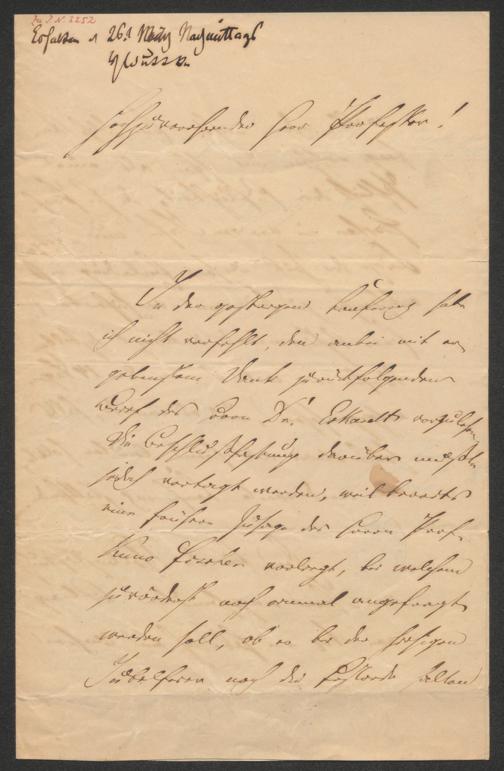 Zu I.N. 3252
Erhalten d 26t März Nachmittags
Hochzuverehrender Herr Professor!
In der gestrigen Conferenz habe
ich nicht verfehlt, den anbei mit er-
gebenstem Dank zurückfolgenden
Brief des Herrn Dr. Eckardt vorzulesen.
Die Beschlußfassung darüber mußte
jedoch vertagt werden, weil bereits
eine frühere Zusage des Herrn Prof.
Kuno Fischer vorliegt, bei welchem
zuvörderst noch einmal angefragt
werden soll, ob er bei der hiesigen
Jubelfeier noch die Festrede halten